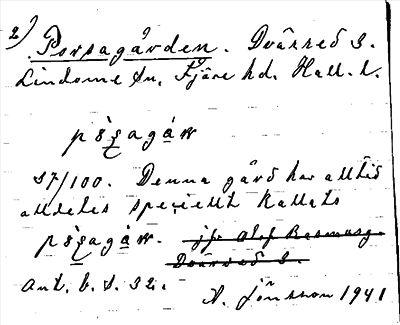 2)
Porsagården. Dvärred S.
Lindome sn, Fjäre hd. Hall. l.
pɔ̀ʂagáɳ
57/100. Denna gård har alltid
alldeles speciellt kallats
jfr Olof Rasmusg.
Dvärred S.
Ant. b. s. 32.
A. Jönsson 1941